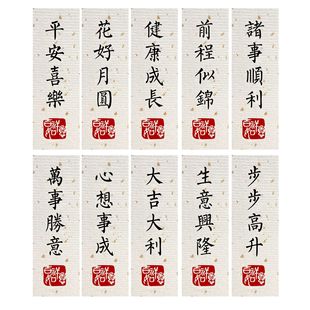 諸事順利
前程似錦
健康成長
花好月圓
平安喜樂
步步高升
生意興隆
大吉大利
心想事成
萬事勝意